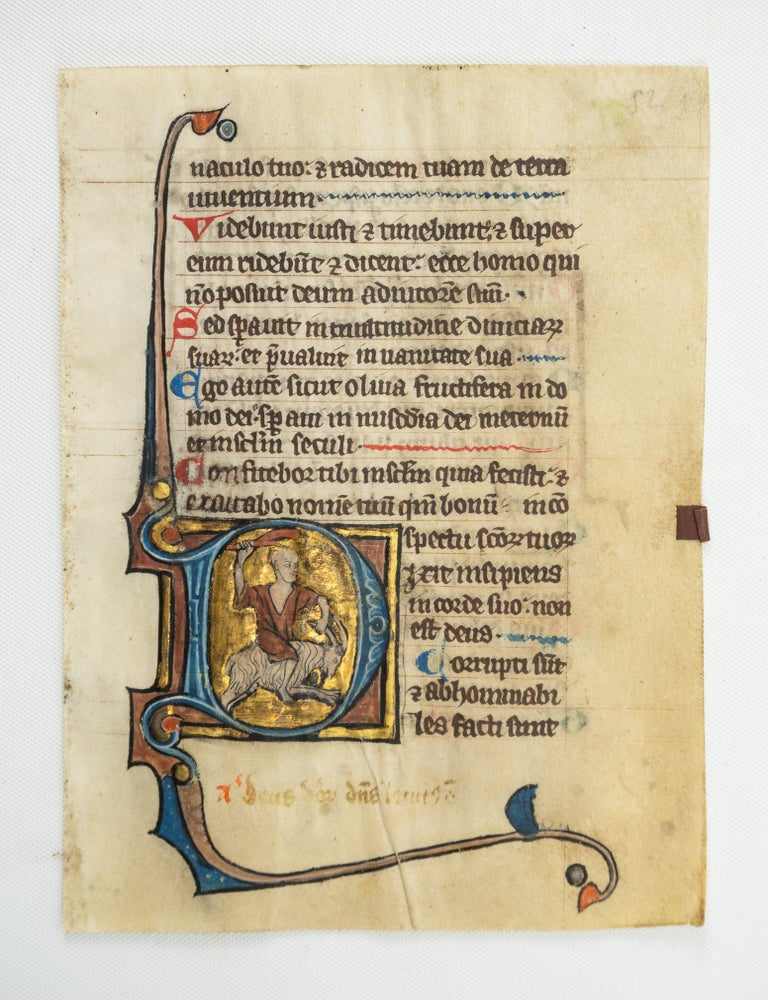 52
naculo tuo: ⁊ radicem tuam de terra
uiuentium.
Videbunt iusti ⁊ timebunt, ⁊ super
eum ridebūt ⁊ dicent: ecce homo qui
nō posuit deum adiutorē suū.
Sed sꝑauit in multitudine diuiciaꝝ
suaꝝ: et p̄ualuit in uanitate sua.
Ego autē sicut oliua fructifera in do
mo dei: sꝑaui in mis̄c̄dia dei in eternū
et in sc̄lm seculi.
Confitebor tibi in sc̄lm quia fecisti: ⁊
expectabo nomē tuū qm̄ bonū in cō
spectu sc̄oꝝ tuoꝝ
Dixit insipiens
in corde suo: non
est deus.
Corrupti sūt
⁊ abhominabi
les facti sunt